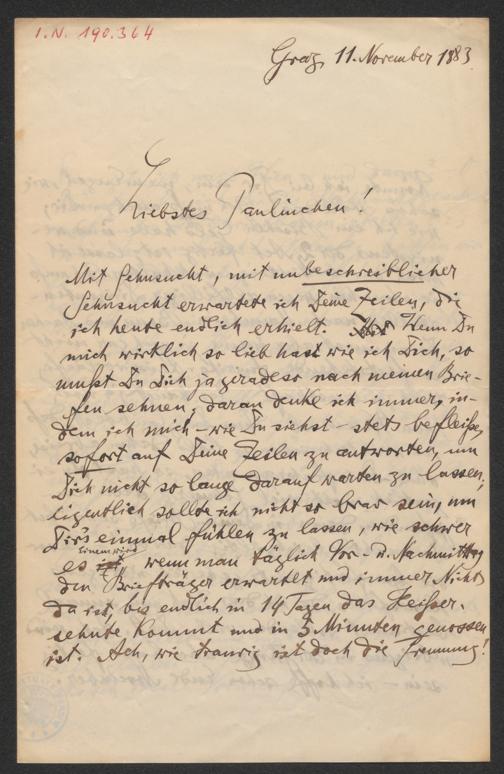 I.N. 190.364
Graz, 11. November 1883.
Liebstes Paulinchen!
Mit Sehnsucht, mit unbeschreiblicher
Sehnsucht erwartete ich Deine Zeilen, die
ich heute endlich erhielt. Wenn Du
mich wirklich so lieb hast wie ich Dich, so
mußt Du Dich ja geradeso nach meinen Brie-
fen sehnen, daran denke ich immer, in-
dem ich mich – wie Du siehst – stets befleiße,
sofort auf Deine Zeilen zu antworten, um
Dich nicht so lange darauf warten zu lassen.
Eigentlich sollte ich nicht so brav sein, um
Dir's einmal fühlen zu lassen, wie schwer
es einem wird, wenn man täglich Vor- u. Nachmittag
den Briefträger erwartet und immer Nichts
da ist, bis endlich in 14 Tagen das Heißer-
sehnte kommt und in 5 Minuten genossen
ist. Ach, wie traurig ist doch die Trennung!